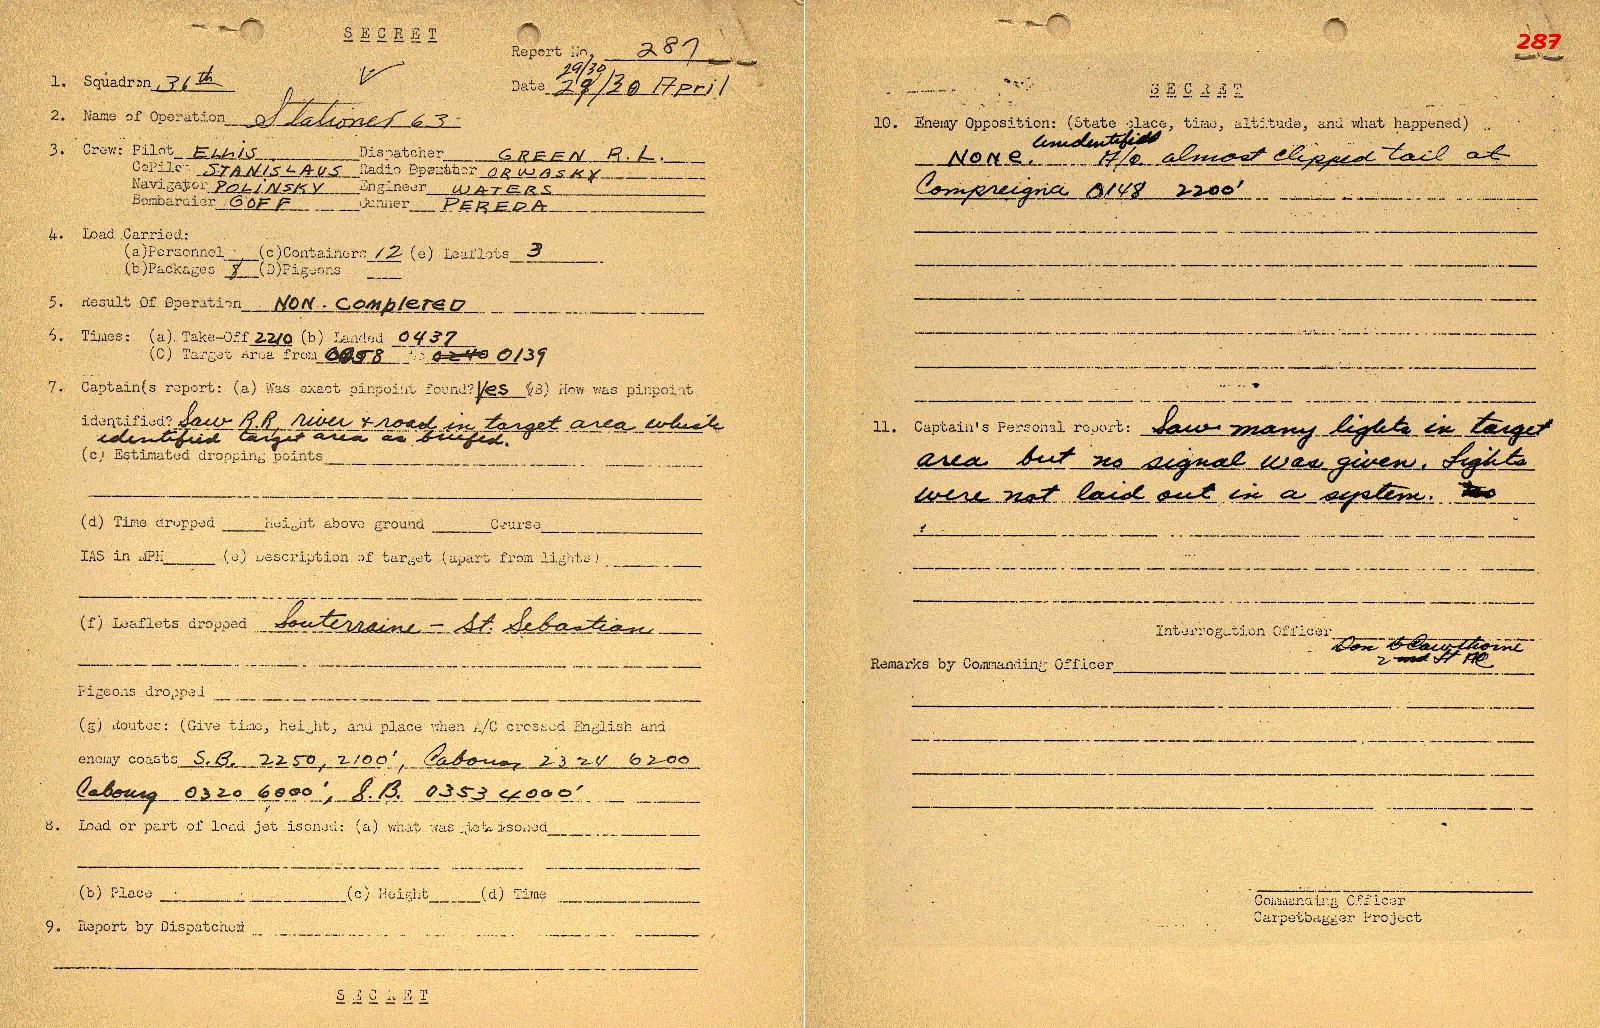 SECRET
Report No. 287
29/30
1. Squadron 36th Date 29/30 April
2. Name of Operation Stationer 63
3. Crew: Pilot ELLIS Dispatcher GREEN R.L.
CoPilot STANISLAUS Radio Operator ORWOSKY
Navigator POLINSKY Engineer WATERS
Bombardier GOFF Gunner PEREDA
4. Load Carried:
(a)Personnel (c)Containers 12 (e) Leaflets 3
(b)Packages 8 (D)Pigeons
5. Result Of Operation NON-COMPLETED
6. Times: (a) Take-Off 2210 (b) Landed 0437
(C) Target Area from 0058 to 0240 0139
7. Captain(s report: (a) Was exact pinpoint found? Yes (B) How was pinpoint
identified? Saw R.R, river & road in target area which
identified target area as briefed.
(c) Estimated dropping points
(d) Time dropped Height above ground Course
IAS in MPH (e) Description of target (apart from lights)
(f) Leaflets dropped Souterraine - St. Sebastian
Pigeons dropped
(g) Routes: (Give time, height, and place when A/C crossed English and
enemy coasts S.B. 2250, 2100', Cabourg 2324 6200
Cabourg 0320 6000', S.B. 0353 4000'
8. Load or part of load jetisoned: (a) what was jetisoned
(b) Place (c) Height (d) Time
9. Report by Dispatcher
SECRET
287
SECRET
10. Enemy Opposition: (State place, time, altitude, and what happened)
unidentified
None. A/c almost clipped tail at
Compreigna 0148 2200'
11. Captain's Personal report: Saw many lights in target
area but no signal was given. Lights
were not laid out in a system. no
Interrogation Officer Don Cawthorne
2nd Lt AC
Remarks by Commanding Officer
Commanding Officer
Carpetbagger Project